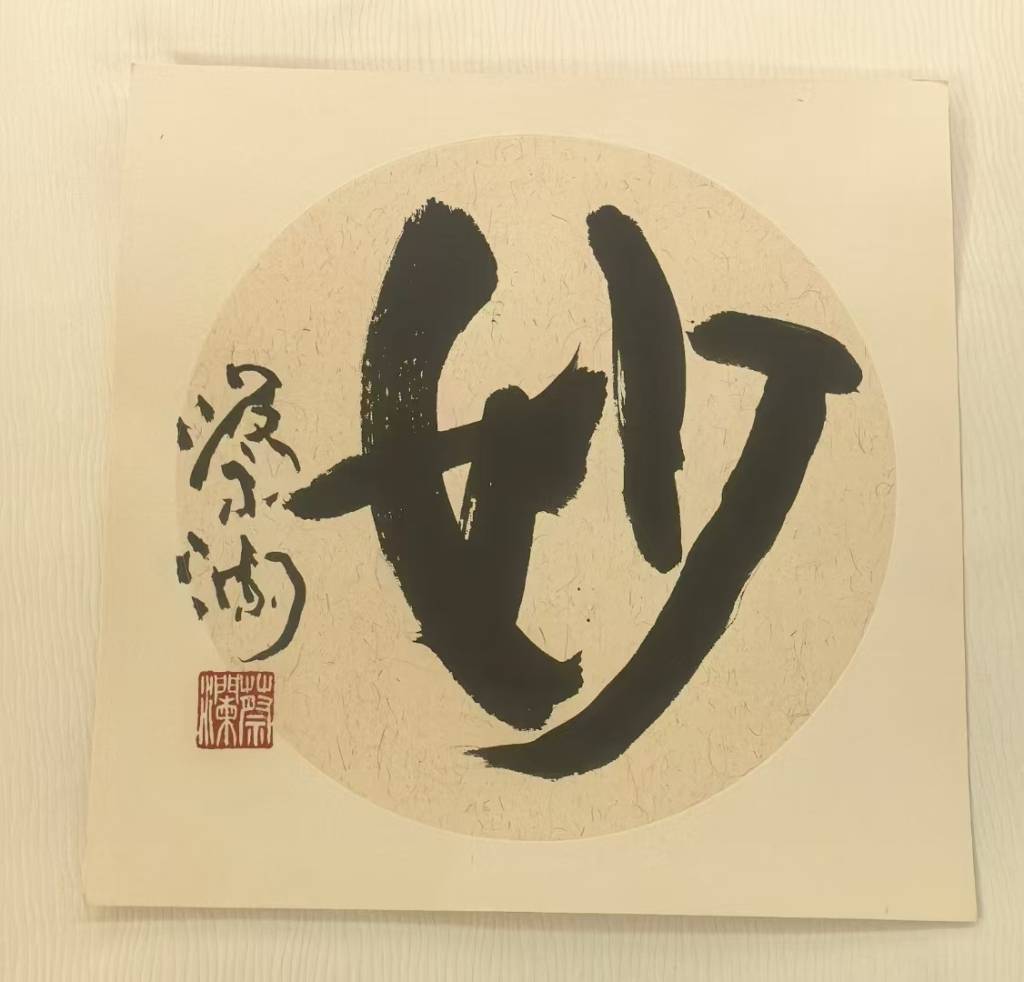 妙
蔡瀾
蔡瀾